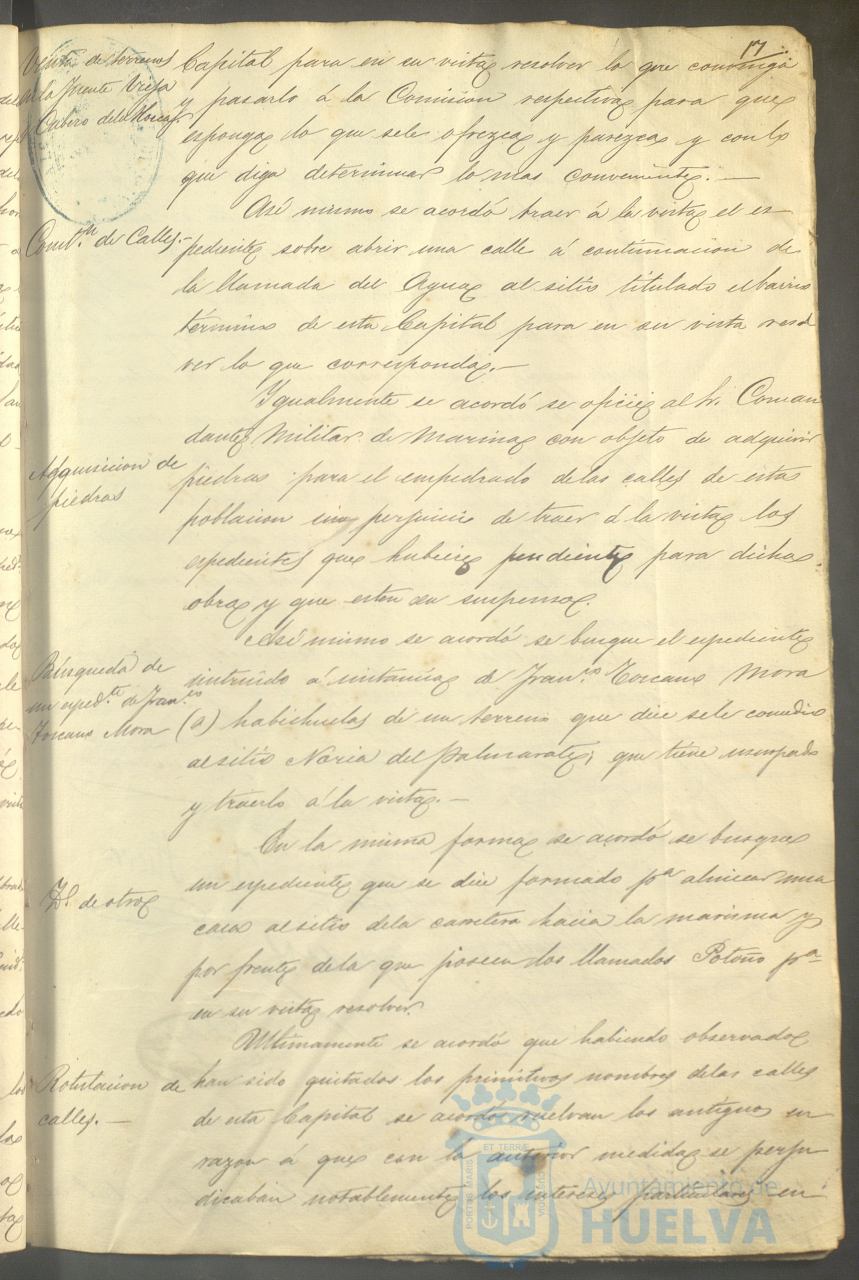 17
Venta de terrenos
en la Fuente Vieja
y Cabezo dela Horca
Capital para en su vista resolver lo que convenga
y pasarlo á la Comision respectiva para que
esponga lo que sele ofrezca y parezca y con lo
que diga determinar lo mas conveniente. —
Así mismo se acordó traer á la vista el es-
Cont.on de Calles.-
pediente sobre abrir una calle á continuacion de
la llamada del Agua al sitio titulado el barrio
término de esta Capital para en su vista resol
ver lo que corresponda. —
Ygualmente se acordó se oficie al Sr. Coman
dante Militar de Marina con objeto de adquirir
Adquisicion de
piedras
piedras para el empedrado delas calles de esta
poblacion sin perjuicio de traer á la vista los
espedientes que hubiere pendiente para dicha
obra y que esten en suspenso.
Así mismo se acordó se busque el espediente
Búsqueda de
un exped.te de Fran.co
Toscano Mora
instruido á instancia de Fran.co Toscano Mora
(a) habichuelas de un terreno que dice sele concedio
al sitio Noria del Palmarote, que tiene usurpado
y traerlo á la vista. —
En la misma forma se acordó se busque
Yd. de otro
un espediente que se dice formado p.a alinear una
casa al sitio dela carretera hacia la marisma y
por frente dela que poseen los llamados Potoño p.a
en su vista resolver.
Ultimamente se acordó que habiendo observado
Rotulacion de
calles. —
han sido quitados los primitivos nombres delas calles
de esta Capital se acordó vuelvan los antiguos en
razon á que con la anterior medida se perju
dicaban notablemente los intereses particulares en
PORTUS MARIS ET TERRÆ CUSTODIA
Ayuntamiento de
HUELVA